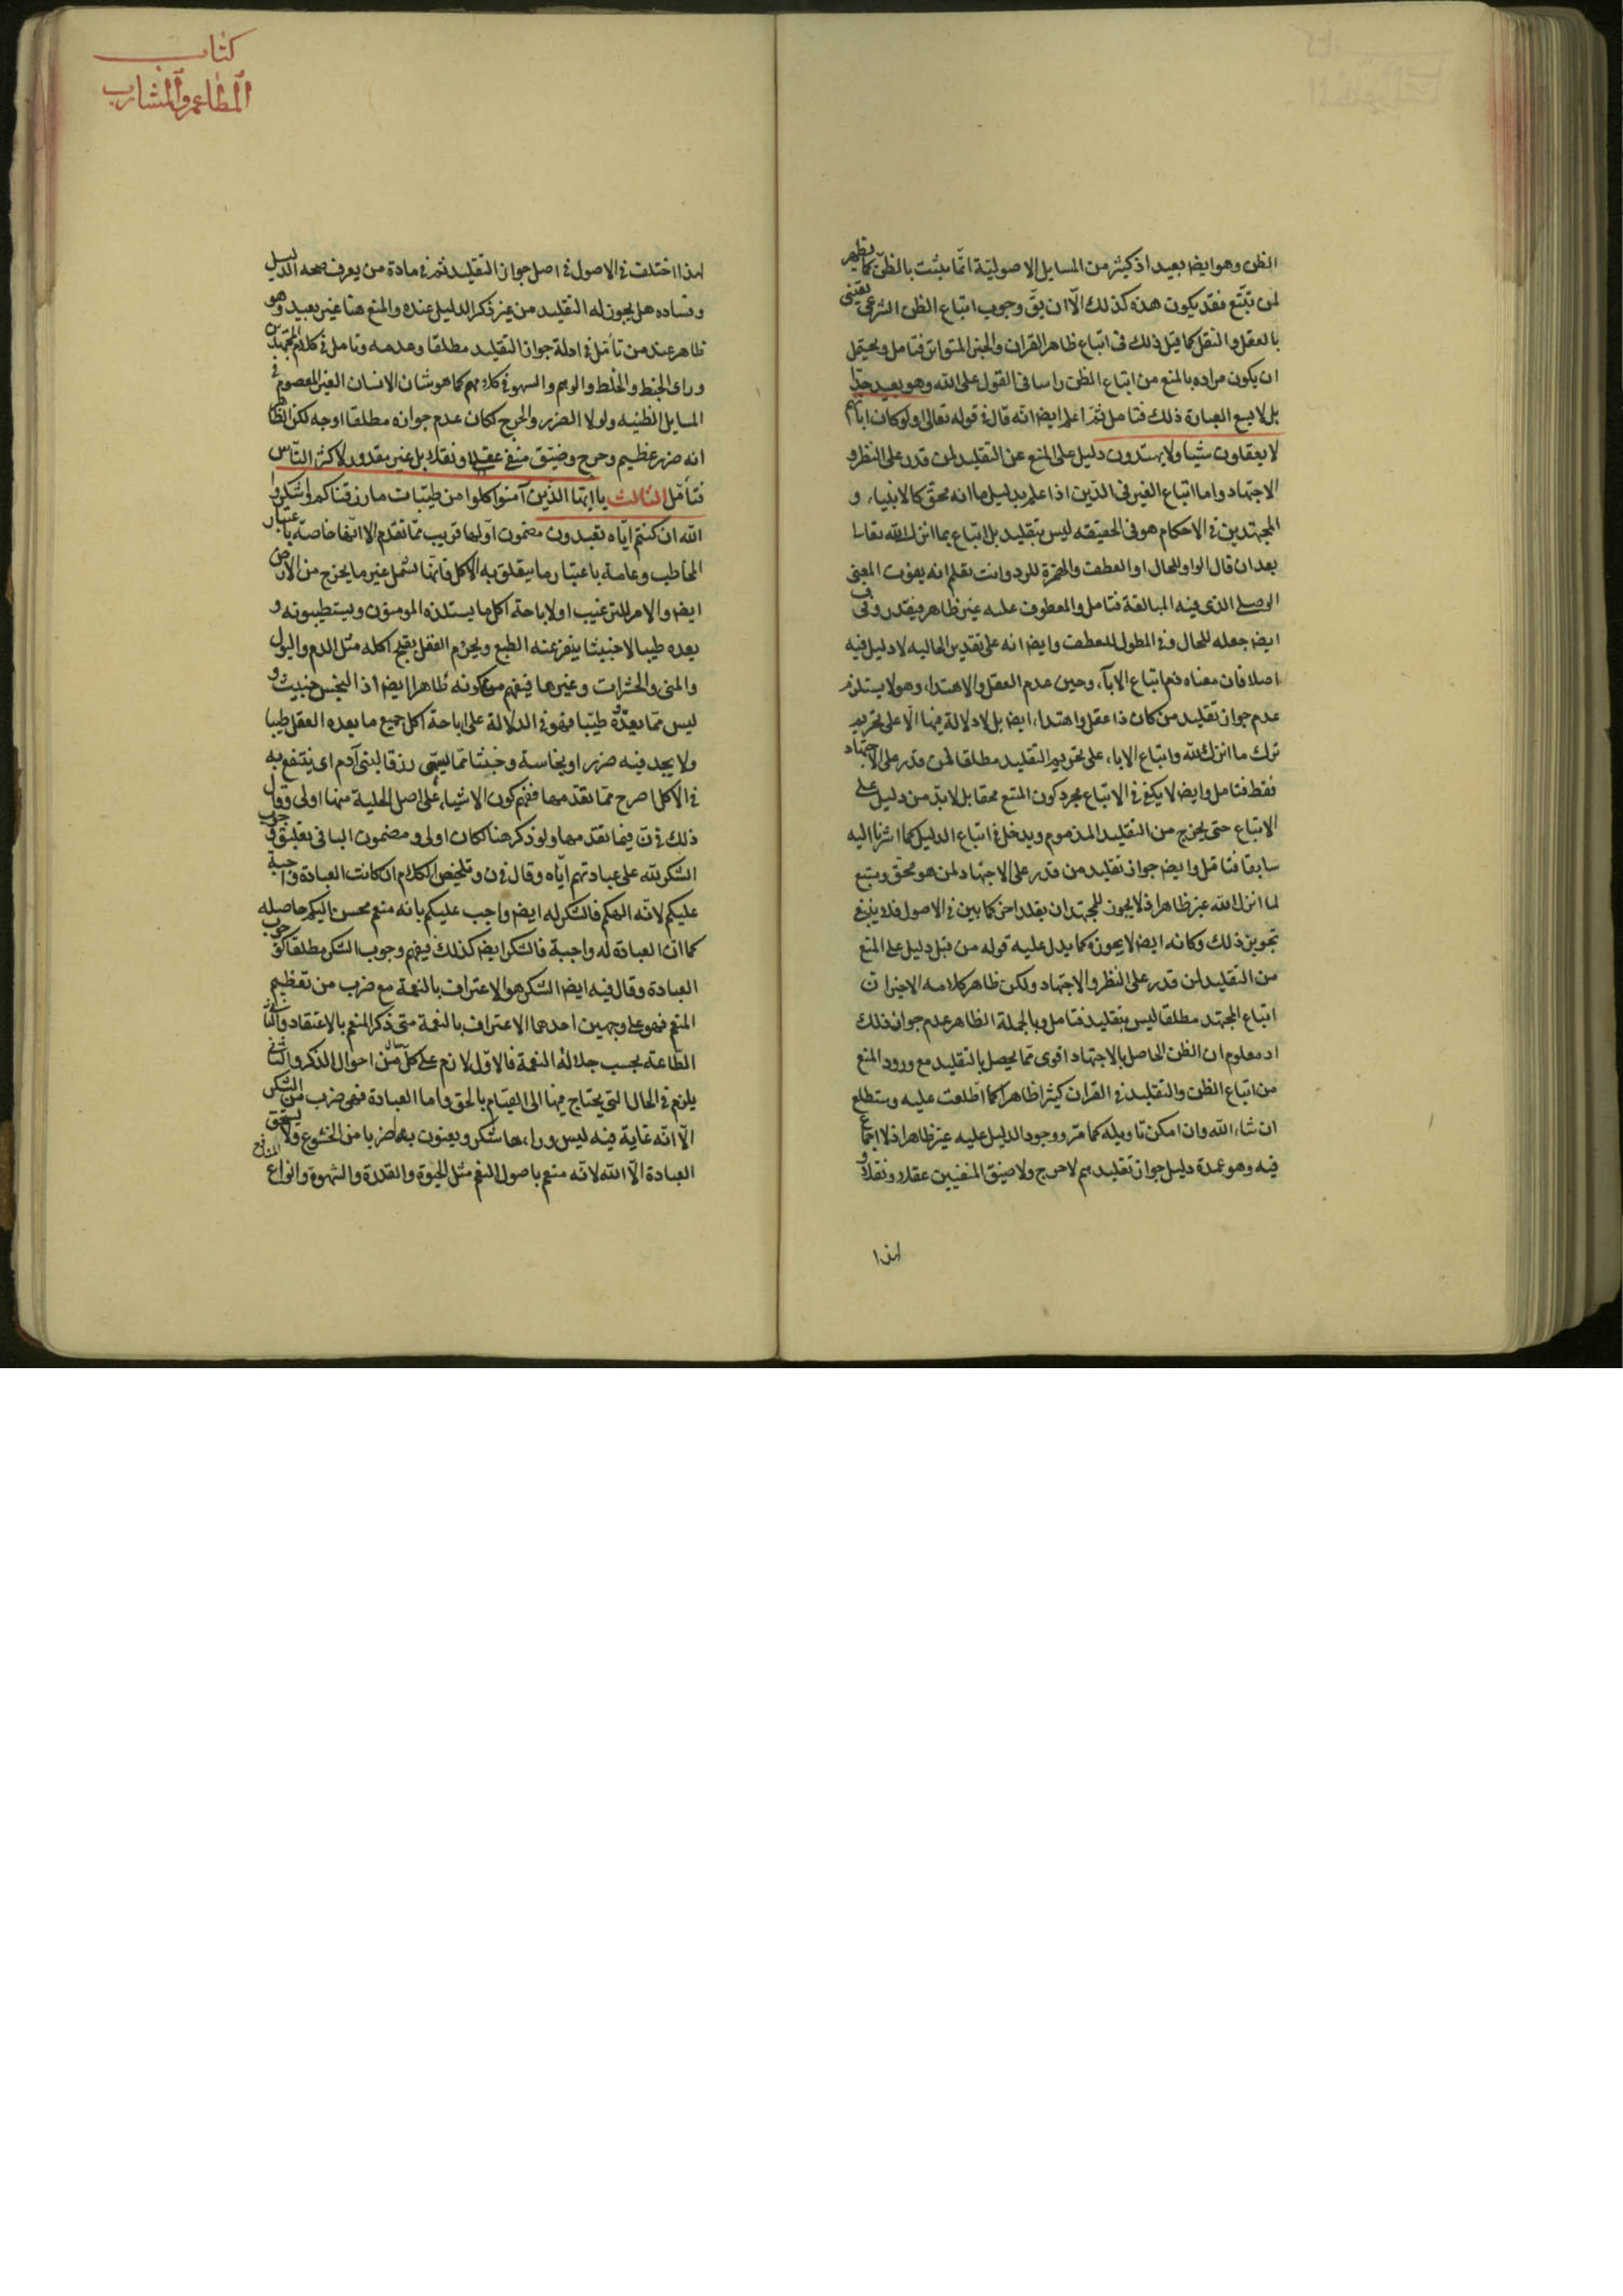 الظن وهو ايضا بعيد اذ كثير من المسايل الاصولية انما يثبت بالظن كما يظهر
لمن تتبع فقد يكون هذه كذلك الا ان يق وجوب اتباع الظن الشرعي يقيني
بالعقل والنقل كما قيل ذلك في اتباع ظاهر القران والخبر المتواتر فتامل ويحتمل
ان يكون مراده بالمنع من اتباع الظن راسا في القول على الله وهو بعيد جدا
بل لا يسع العبارة ذلك فتامل ثم اعلم ايضا انه قال في قوله تعالى اولو كان اباؤهم
لا يعقلون شيئا ولا يهتدون دليل على المنع عن التقليد لمن قدر على النظر و
الاجتهاد واما اتباع الغير في الدين اذا علم بدليل ما انه محق كالانبياء و
المجتهدين في الاحكام هو في الحقيقه ليس بتقليد بل اتباع بما انزل الله تعالى
بعد ان قال الواو للحال او العطف والهمزة للرد وانت تعلم انه يفوت المعنى
الوصلي الذي فيه المبالغة فتامل والمعطوف عليه غير ظاهر فيقدر وفي ف
ايضا جعله للحال وفي المطول للعطف وايضا انه على تقدير الحاليه لا دليل فيه
اصلا فان معناه ذم اتباع الابآء وحين عدم العقل والاهتداء وهو لا يستلزم
عدم جواز تقليد من كان ذا عقل واهتداء ايضا بل لا دلالة فيها الا على تحريم
ترك ما انزل الله واتباع الاباء على تحريم التقليد مطلقا لمن قدر على الاجتهاد
فقط فتامل وايضا لا يكفي في الاتباع مجرد كون المتبع محقا بل لابد من دليل على
الاتباع حتى يخرج من التقليد المذموم ويدخل في اتباع الدليل كما اشرنا اليه
سابقا فتامل وايضا جواز تقليد من قدر على الاجتهاد لمن هو محق ومتبع
لما انزل الله غير ظاهر اذ لا يجوز للمجتهد ان يقلد اخر كما بين في الاصول فلا ينبغي
تجويز ذلك وكانه ايضا لا يجوزه كما يدل عليه قوله من قبل دليل على المنع
من التقليد لمن قدر على النظر والاجتهاد ولكن ظاهر كلامه الاخير ان
اتباع المجتهد مطلقا ليس بتقليد فتامل وبالجملة الظاهر عدم جواز ذلك
اذ معلوم ان الظن الحاصل بالاجتهاد اقوى مما يحصل بالتقليد مع ورود المنع
من اتباع الظن والتقليد في القران كثيرا ظاهرا كما اطلعت عليه وستطلع
ان شاء الله وان امكن تاويله كما مر ووجود الدليل عليه غير ظاهر اذ لا اجماع
فيه وهو عمدة دليل جواز تقليدهم لا حرج ولا ضيق المنفيين عقلا ونقلا و
لهذا
كتاب
المطاعم والمشارب
لهذا اختلف في الاصول في اصل جواز التقليد ثم في مادة من يعرف صحه الدليل
وفساده هل يجوز له التقليد من غير ذكر الدليل عنده والمنع هنا غير بعيد وهو
ظاهر عند من تامل في ادلة جواز التقليد مطلقا وعدمه وتامل في كلام المجتهدين
وراى الخبط والخلط والوهم والسهو في كلامهم كما هو شان الانسان الغير المعصوم في
المسايل الظنيه ولولا الضرر والحرج لكان عدم جوازه مطلقا اوجه لكن الظاهر
انه ضرر عظيم وحرج وضيق منفي عقلا ونقلا بل غير مقدور لاكثر الناس
فتأمل الثالث يا ايها الذين آمنوا كلوا من طيبات ما رزقناكم واشكروا
الله ان كنتم اياه تعبدون مضمون اولها قريب مما تقدم الا انها خاصة باعتبار
المخاطب وعامة باعتبار ما يتعلق به الاكل فانها تشمل غير ما يخرج من الارض
ايضا والامر للترغيب او لاباحة اكل ما يستلذه المومنون ويستطيبونه و
يعده طيبا لا خبيثا ينفر عنه الطبع ويجزم العقل بقبح اكله مثل الدم والبول
والمني والحشرات وغيرها فيفهم منه كونه طاهرا ايضا اذ النجس خبيث و
ليس مما يعدّه طيبا فهو في الدلالة على اباحة اكل جميع ما يعده العقل طيبا
ولا يجد فيه ضررا ونجاسة وخبثا مما يسمى رزقا لبني آدم اي ينتفع به
في الاكل اصرح مما تقدمها ففهم كون الاشياء على اصل الحلية منها اولى وقال
ذلك في ن فيما تقدمها ولو ذكر هنا لكان اولى ومضمون الباقي تعليق وجوب
الشكر لله على عبادتهم اياه وقال في ن وتلخيص الكلام ان كانت العبادة واجبة
عليكم لانه الهكم فالشكر له ايضا واجب عليكم بانه منعم محسن اليكم حاصله
كما ان العبادة له واجبة فالشكر ايضا كذلك فيفهم وجوب الشكر مطلقا كوجوب
العبادة وقال فيه ايضا الشكر هو الاعتراف بالنعمة مع ضرب من تعظيم
المنعم فهو على وجهين احدهما الاعتراف بالنعمة متى ذكر المنعم بالاعتقاد والثاني
الطاعة بحسب جلالة النعمة فالاول لازم على كل حال من احوال الذكر والثاني
يلزم في الحال التي يحتاج فيها الى القيام بالحق واما العبادة فهي ضرب من الشكر
الا انه غاية فيه ليس وراءها شكر ويعنون بها ضربا من الخشوع ولا يستحق
العبادة الا الله لانه منعم باصول النعم مثل الحيوة والقدرة والشهوة وانواع المنافع